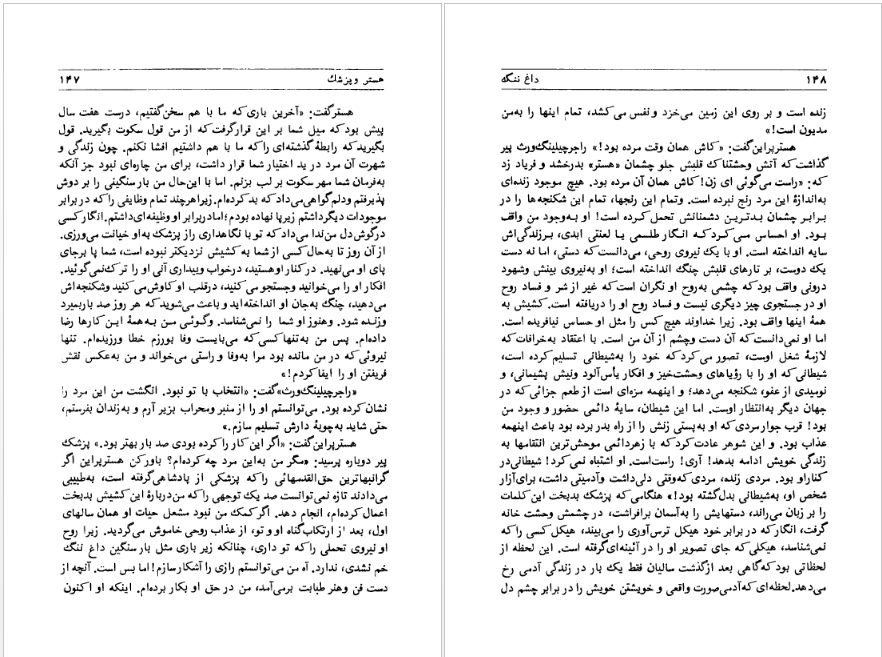 هستر و پزشک ۱۴۷
هستر گفت: «آخرین باری که ما با هم سخن گفتیم، درست هفت سال
پیش بود که میل شما بر این قرار گرفت که از من قول سکوت بگیرید. قول
بگیرید که رابطهٔ گذشته‌ای را که ما با هم داشتیم افشا نکنم. چون زندگی و
شهرت آن مرد در ید اختیار شما قرار داشت، برای من چاره‌ای نبود جز آنکه
به‌فرمان شما مهر سکوت بر لب بزنم. اما با این‌حال من بار سنگینی را بر دوش
پذیرفتم ودلم گواهی می‌داد که بد کرده‌ام. زیرا هرچند تمام وظایفی را که در برابر
موجودات دیگر داشتم زیر پا نهاده بودم؛ اما در برابر او وظیفه‌ای داشتم. انگار کسی
در گوش دل من ندا می‌داد که تو با نگاهداری راز پزشک به‌او خیانت می‌ورزی.
از آن روز تا به‌حال کسی از شما به کشیش نزدیکتر نبوده است، شما پا برجای
پای او می‌نهید. در کنار او هستید، درخواب وبیداری آنی او را ترک نمی‌گوئید.
افکار او را می‌خوانید وجستجو می‌کنید، درقلب او کاوش می‌کنید وشکنجه‌اش
می‌دهید، چنگ به‌جان او انداخته‌اید و باعث می‌شوید که هر روز صد بار بمیرد
وزنده شود. وهنوز او شما را نمی‌شناسد. وگوئی من به‌همهٔ این کارها رضا
داده‌ام. پس من به‌تنها کسی که می‌بایست وفا بورزم خطا ورزیده‌ام. تنها
نیروئی که در من مانده بود مرا به‌وفا و راستی می‌خواند و من به‌عکس نقش
فریفتن او را ایفا کردم!»
«راجر چیلینگ‌ورث» گفت: «انتخاب با تو نبود. انگشت من این مرد را
نشان کرده بود. می‌توانستم او را از منبر ومحراب بزیر آرم و به‌زندان بفرستم،
حتی شاید به‌چوبهٔ دارش تسلیم سازم.»
هستر پراین گفت: «اگر این کار را کرده بودی صد بار بهتر بود.» پزشک
پیر دوباره پرسید: «مگر من به‌این مرد چه کرده‌ام؟ باور کن هستر پراین اگر
گرانبهاترین حق‌القدمهائی را که پزشکی از پادشاهی گرفته است، به‌طبیبی
می‌دادند تازه نمی‌توانست صد یک توجهی را که من دربارهٔ این کشیش بدبخت
اعمال کرده‌ام، انجام دهد. اگر کمک من نبود مشعل حیات او همان سالهای
اول، بعد از ارتکاب گناه او و تو، از عذاب روحی خاموش می‌گردید. زیرا روح
او نیروی تحملی را که تو داری، چنانکه زیر باری مثل بار سنگین داغ ننگ
خم نشدی، ندارد. آه من می‌توانستم رازی را آشکار سازم! اما بس است. آنچه از
دست فن وهنر طبابت برمی‌آمد، من در حق او بکار برده‌ام. اینکه او اکنون
۱۴۸ داغ ننگ
زنده است و بر روی این زمین می‌خزد و نفس می‌کشد، تمام اینها را به‌من
مدیون است!»
هستر پراین گفت: «کاش همان وقت مرده بود!» راجر چیلینگ‌ورث پیر
گذاشت که آتش وحشتناک قلبش جلو چشمان «هستر» بدرخشد و فریاد زد
که: «راست می‌گوئی ای زن! کاش همان آن مرده بود. هیچ موجود زنده‌ای
به‌اندازهٔ این مرد رنج نبرده است. وتمام این رنجها، تمام این شکنجه‌ها را در
برابر چشمان بدترین دشمنانش تحمل کرده است! او به‌وجود من واقف
بود. او احساس می‌کرد که انگار طلسمی یا لعنتی ابدی، بر زندگی‌اش
سایه انداخته است. او با یک نیروی روحی، می‌دانست که دستی، اما نه دست
یک دوست، بر تارهای قلبش چنگ انداخته است؛ او به‌نیروی بینش وشهود
درونی واقف بود که چشمی به‌روح او نگران است که غیر از شر و فساد روح
او در جستجوی چیز دیگری نیست و فساد روح او را دریافته است. کشیش به
همهٔ اینها واقف بود. زیرا خداوند هیچ کس را مثل او حساس نیافریده است.
اما او نمی‌دانست که آن دست وچشم از آن من است. با اعتقاد به‌خرافات که
لازمهٔ شغل اوست، تصور می‌کرد که خود را به‌شیطانی تسلیم کرده است،
شیطانی که او را با رؤیاهای وحشت‌خیز و افکار یأس‌آلود ونیش پشیمانی، و
نومیدی از عفو، شکنجه می‌دهد؛ و اینهمه مزه‌ای است از طعم جزائی که در
جهان دیگر به‌انتظار اوست. اما این شیطان، سایهٔ دائمی حضور و وجود من
بود! قرب جوار مردی که او به‌پستی زنش را از راه بدر برده بود باعث اینهمه
عذاب بود. و این شوهر عادت کرد که با زهر دائمی موحش‌ترین انتقامها به
زندگی خویش ادامه بدهد! آری! راست است. او اشتباه نمی‌کرد! شیطانی در
کنار او بود. مردی زنده، مردی که وقتی دلی داشت وآدمیتی داشت، برای آزار
شخص او، به‌شیطانی بدل گشته بود!» هنگامی که پزشک بدبخت این کلمات
را بر زبان می‌راند، دستهایش را به‌آسمان برافراشت، در چشمش وحشت خانه
گرفت، انگار که در برابر خود هیکل ترس‌آوری را می‌بیند، هیکل کسی را که
نمی‌شناسد، هیکلی که جای تصویر او را در آئینه‌ای گرفته است. این لحظه از
لحظاتی بود که گاهی بعد از گذشت سالیان فقط یک بار در زندگی آدمی رخ
می‌دهد. لحظه‌ای که آدمی صورت واقعی و خویشتن خویش را در برابر چشم دل